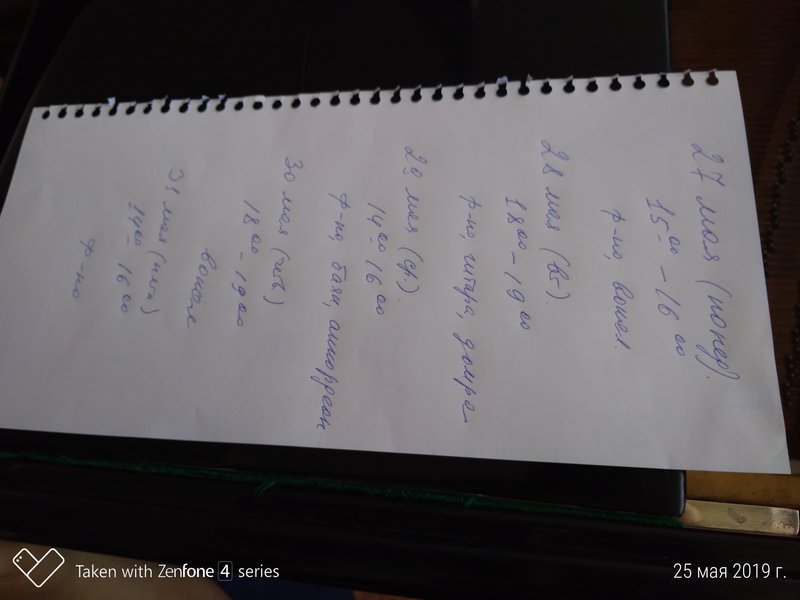 27 мая (понед).
15⁰⁰ - 16⁰⁰
ф-но, вокал.
28 мая (вт).
18⁰⁰ - 19⁰⁰
ф-но, гитара, домра
29 мая (ср).
14⁰⁰ - 16⁰⁰
ф-но, баян, аккордеон
30 мая (чев)
18⁰⁰ - 19⁰⁰
вокал
31 мая (пятн)
14⁰⁰ - 16⁰⁰
ф-но
Taken with Zenfone 4 series
25 мая 2019 г.